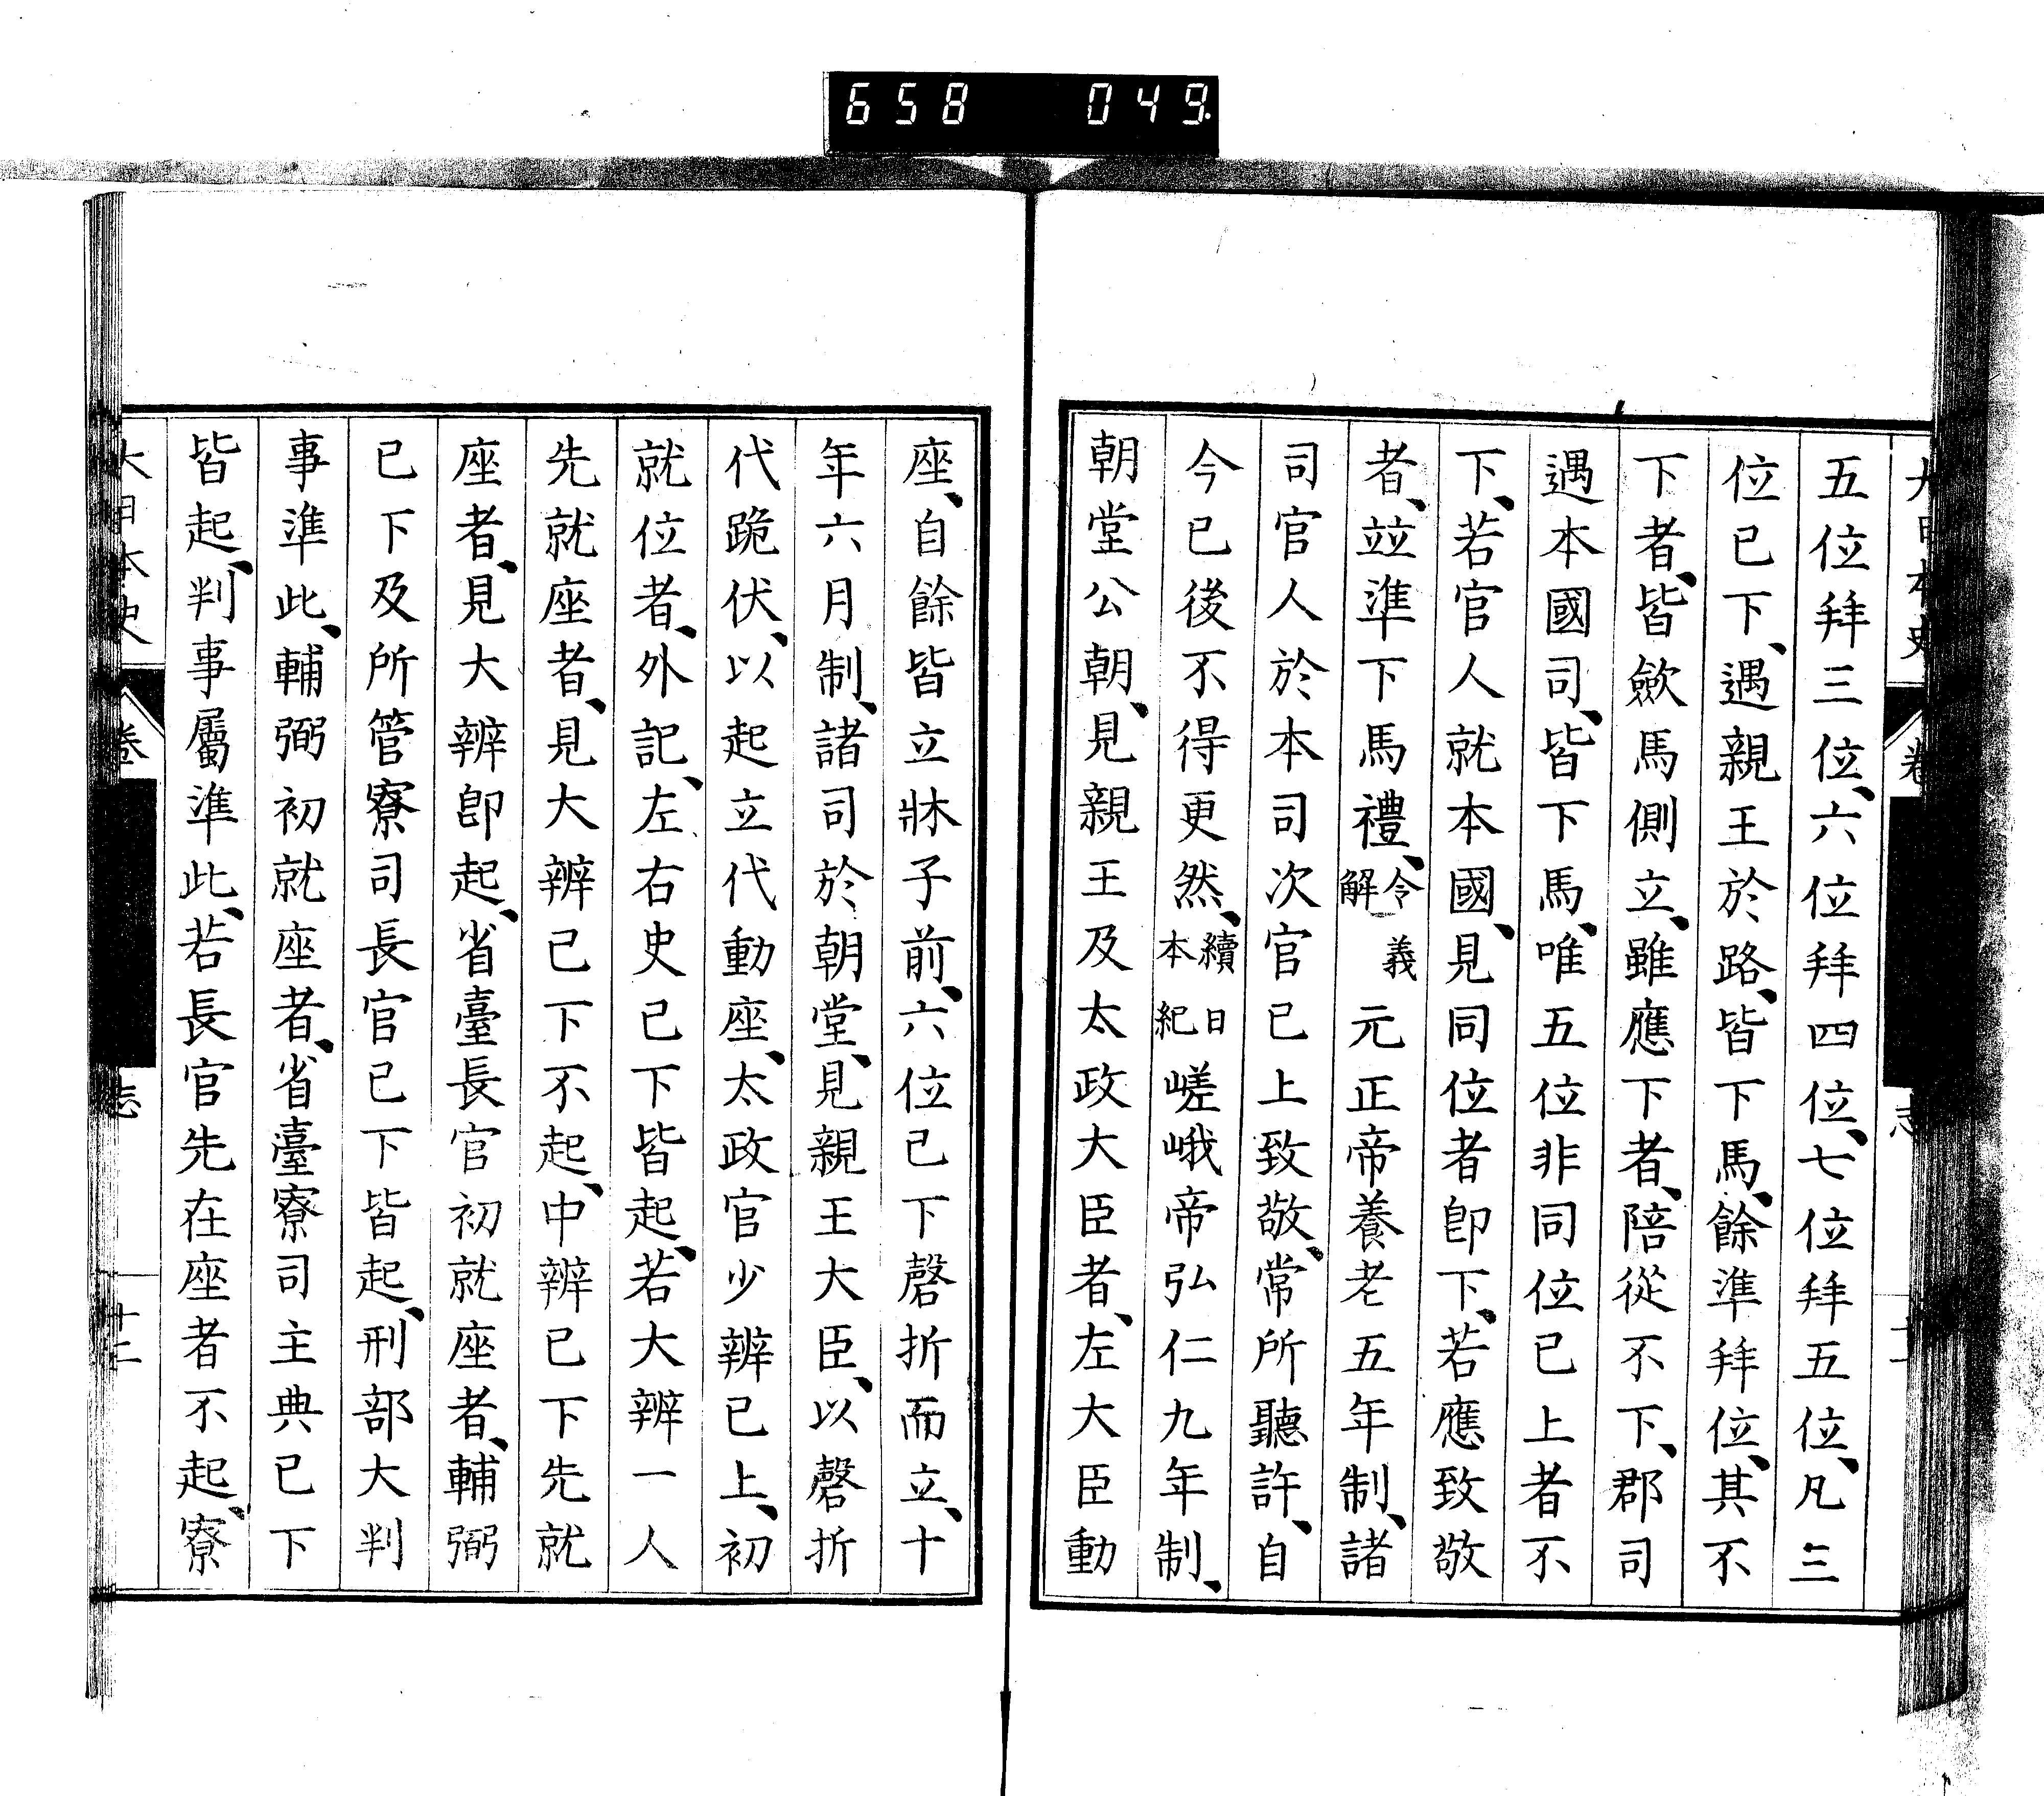 658 049
大日本史 卷 志 十一
五位拜三位、六位拜四位、七位拜五位、凡三
位已下、遇親王於路、皆下馬、餘準拜位、其不
下者、皆歛馬側立、雖應下者、陪從不下、郡司
遇本國司、皆下馬、唯五位非同位已上者不
下、若官人就本國、見同位者卽下、若應致敬
者、竝準下馬禮、令義解 元正帝養老五年制、諸
司官人於本司次官已上致敬、常所聽許、自
今已後不得更然、續日本紀 嵯峨帝弘仁九年制、
朝堂公朝、見親王及太政大臣者、左大臣動
座、自餘皆立牀子前、六位已下磬折而立、十
年六月制、諸司於朝堂、見親王大臣、以磬折
代跪伏、以起立代動座、太政官少辨已上、初
就位者、外記、左右史已下皆起、若大辨一人
先就座者、見大辨已下不起、中辨已下先就
座者、見大辨卽起、省臺長官初就座者、輔弼
已下及所管寮司長官已下皆起、刑部大判
事準此、輔弼初就座者、省臺寮司主典已下
皆起、判事屬準此、若長官先在座者不起、寮
大日本史 卷 志 十二